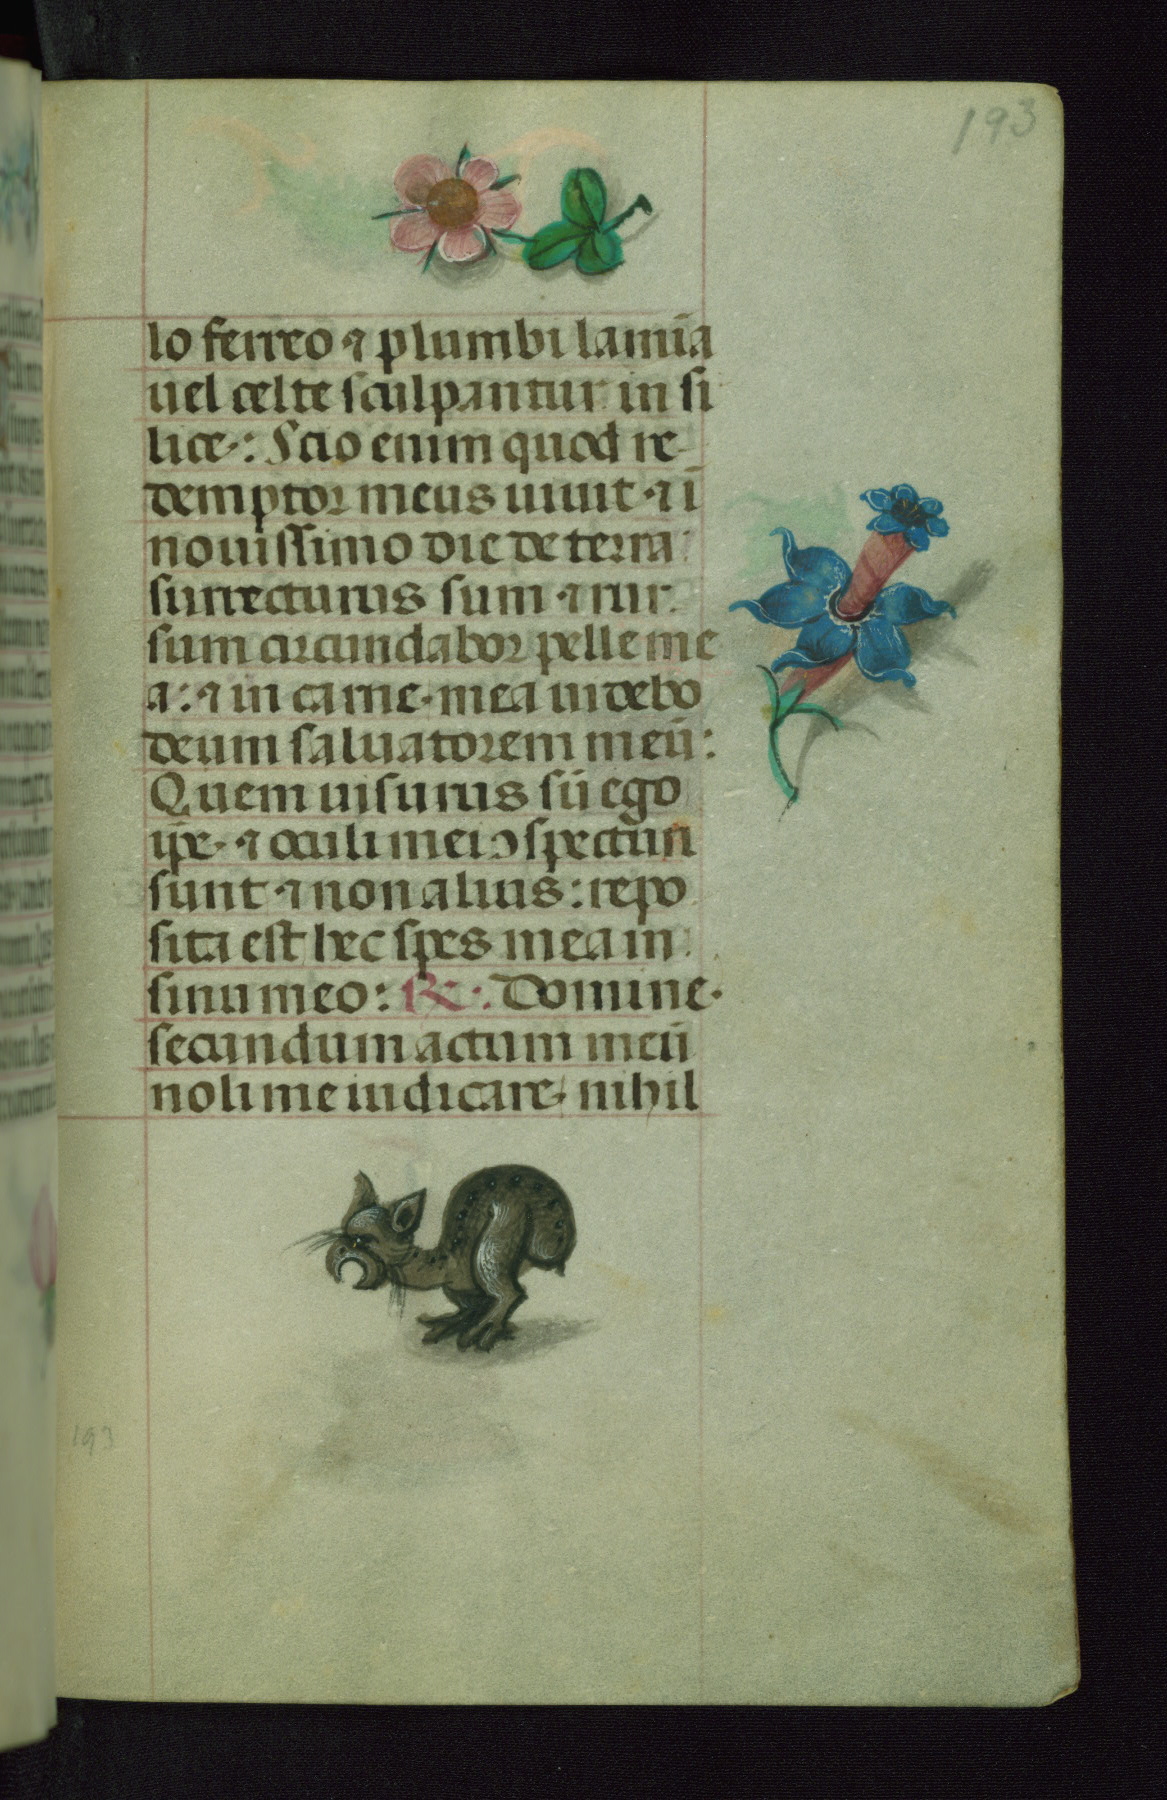 193
lo ferreo ⁊ plumbi lamīa
uel celte sculpantur in si
lice: Scio enim quod re
demptor meus uiuit ⁊ ī
nouissimo die de terra
surrecturus sum ⁊ rur
sum circumdabor pelle me
a: ⁊ in carne mea uidebo
deum saluatorem meū:
Quem uisurus sū ego
ip̄e ⁊ oculi mei ɔspecturi
sunt ⁊ non alius: repo
sita est hec spes mea in
sinu meo: ℟: Domine
secundum actum meū
noli me iudicare nihil
193